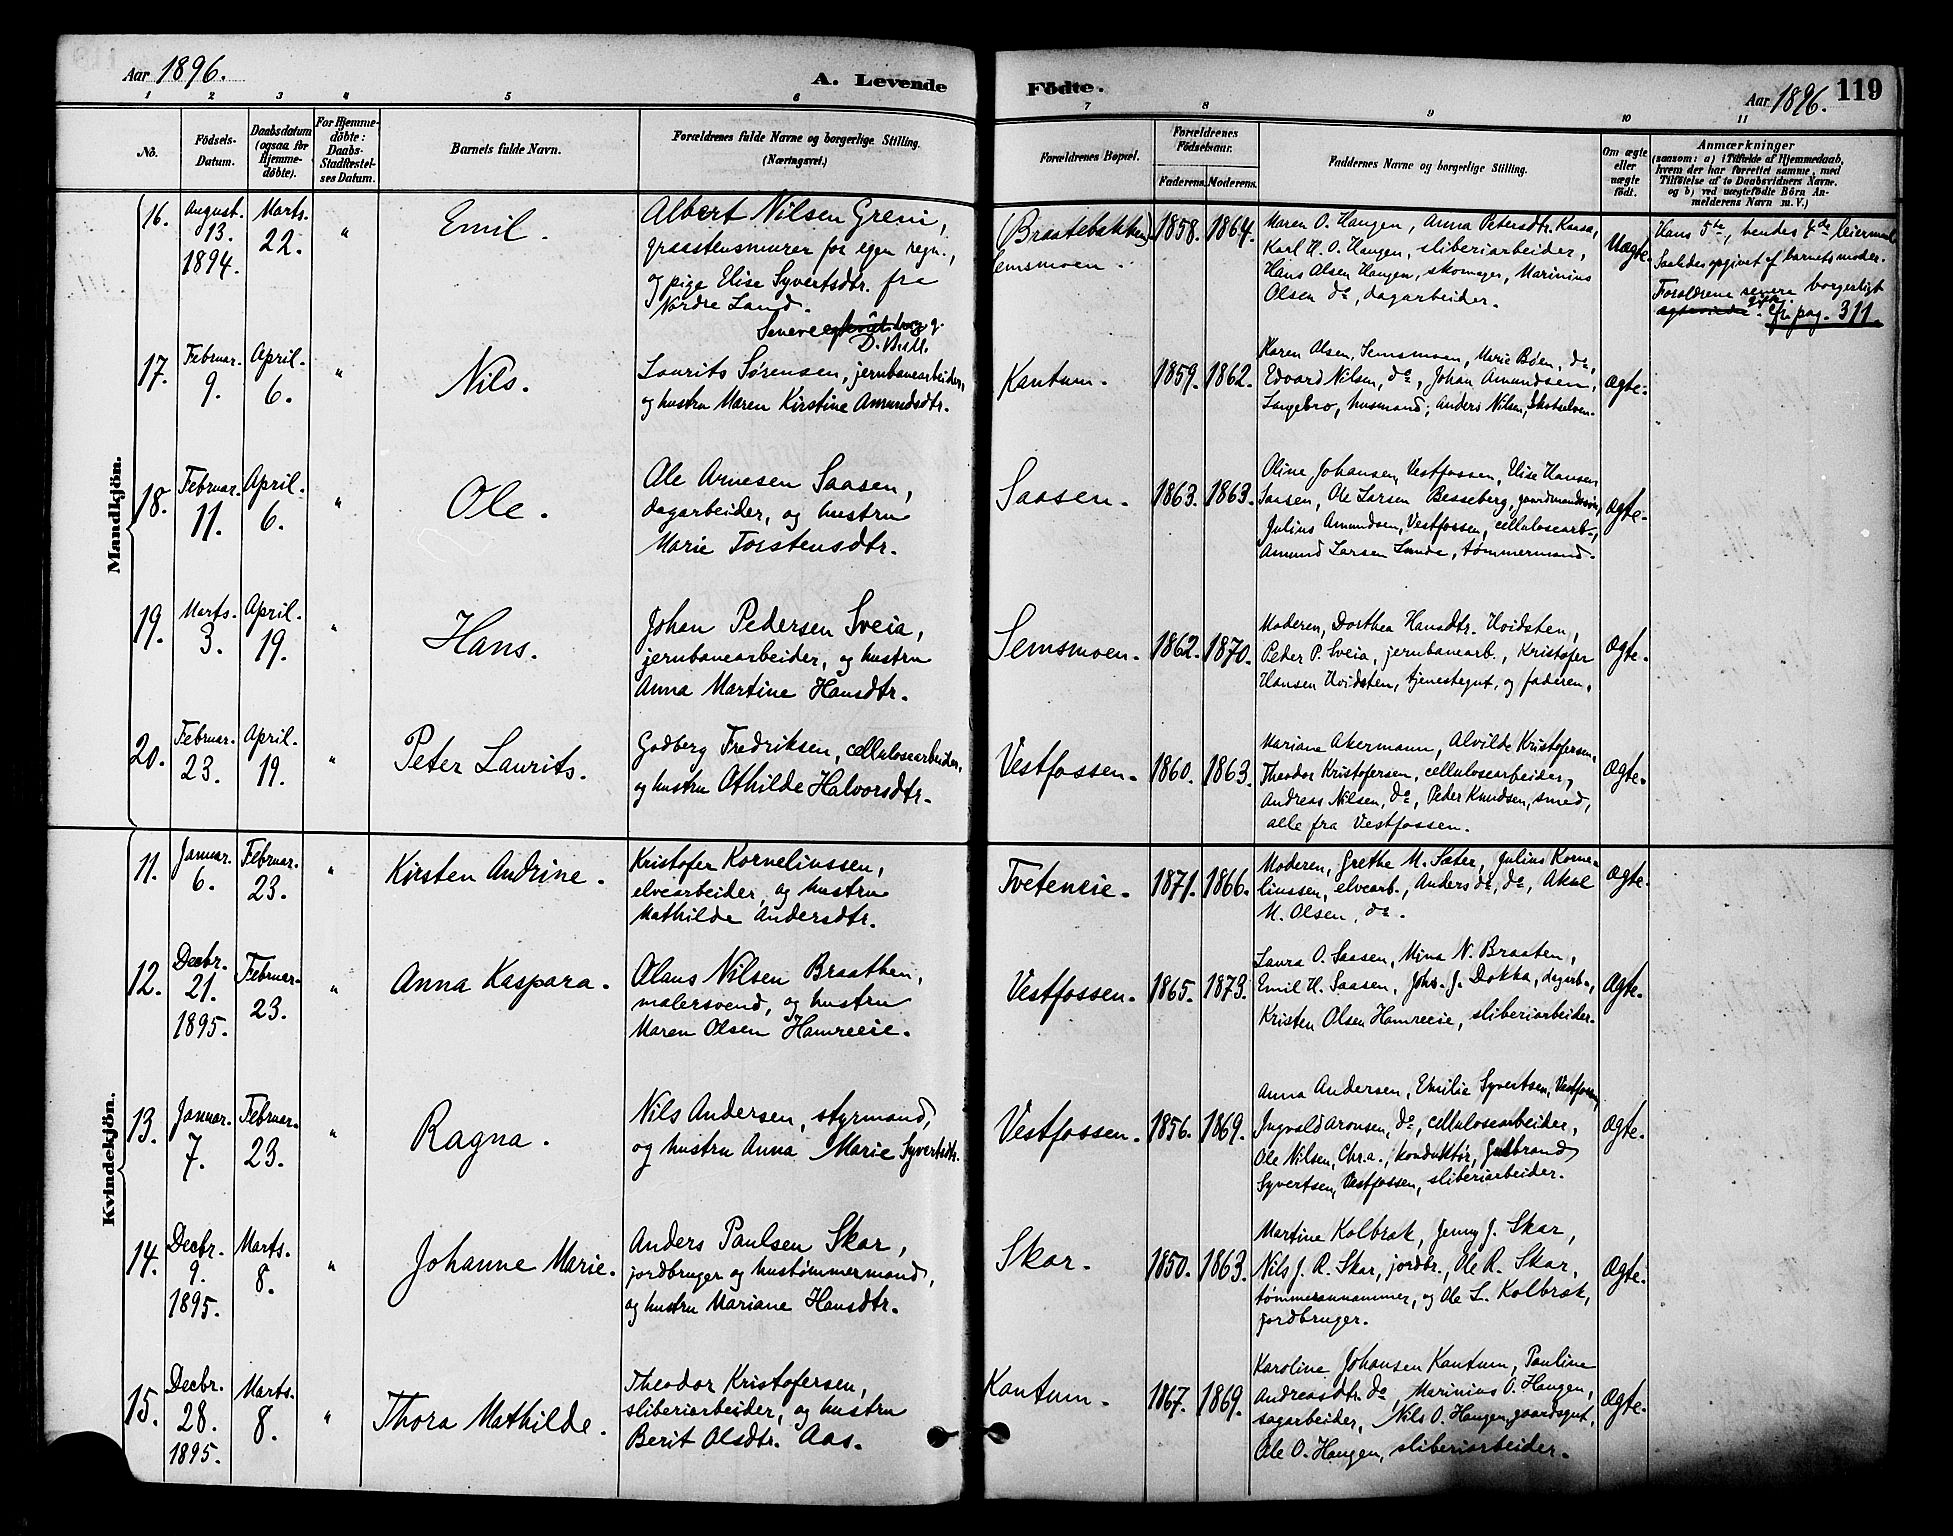 Aar 1896.
A. Levende
1 2 3 4 5 6
No.
Födsels-
Datum.
Daabsdatum
(ogsaa for
Hjemme-
döbte).
For Hjemme-
döbte:
Daabs-
Stadfæstel-
ses Datum.
Barnets fulde Navn.
Forældrenes fulde Navne og borgerlige Stilling.
(Næringsvei.)
Mandkjön.
16.
August.
13.
1894.
Marts.
22.
"
Emil.
Albert Nilsen Greni,
graastensmurer for egen regn.,
og pige Elise Syvertsdtr. fra
Nordre Land.
Senere
17.
Februar.
9.
April.
6.
"
Nils.
Laurits Sørensen, jernbanearbeider,
og hustru Maren Kirstine Amundsdtr.
18.
Februar.
11.
April.
6.
"
Ole.
Ole Arnesen Saasen,
dagarbeider, og hustru
Marie Torstensdtr.
19.
Marts.
3.
April.
19.
"
Hans.
Johan Pedersen Sveia,
jernbanearbeider, og hustru
Anna Martine Hansdtr.
20.
Februar.
23.
April.
19.
"
Peter Laurits.
Godberg Fredriksen, cellulosearbeider,
og hustru Othilde Halvorsdtr.
Kvindekjön.
11.
Januar.
6.
Februar.
23.
"
Kirsten Andrine.
Kristofer Korneliussen,
elvearbeider, og hustru
Mathilde Andersdtr.
12.
Decbr.
21.
1895.
Februar.
23.
"
Anna Kaspara.
Olaus Nilsen Braathen,
malersvend, og hustru
Maren Olsen Hamreeie.
13.
Januar.
7.
Februar.
23.
"
Ragna.
Nils Andersen, styrmand,
og hustru Anna Marie Syvertsdtr.
14.
Decbr.
9.
1895.
Marts.
8.
"
Johanne Marie.
Anders Paulsen Skar,
jordbruger og hustømmermand,
og hustru Mariane Hansdtr.
15.
Decbr.
28.
1895.
Marts.
8.
"
Thora Mathilde.
Theodor Kristofersen,
sliberiarbeider, og hustru
Berit Olsdtr. Aas.
Födte.
Aar 1896.
119
7 8 9 10 11
Forældrenes Bopæl.
Forældrenes
Födselsaar.
Faderens. Moderens.
Faddernes Navne og borgerlige Stilling.
Om ægte
eller
uægte
födt.
Anmærkninger
(saasom: a) i Tilfælde af Hjemmedaab,
hvem der har forrettet samme, med
Tilföielse af to Daabsvidners Navne,
og b) ved uægtefödte Börn An-
melderens Navn m. V.)
(Braatebakken)
Semsmoen.
1858. 1864.
Maren O. Haugen, Anna Petersdtr.
Karl H. O. Haugen, sliberiarbeider,
Hans Olsen Haugen, skomager, Marinius
Olsen do, dagarbeider.
Uægte.
Hans 5te, hendes 4de leiermaal
Saaledes opgivet af barnets moder.
Forældrene senere borgerligt
gift. cfr. pag. 311.
Kantum.
1859. 1862.
Karen Olsen, Semsmoen, Marie Bøen, do,
Edvard Nilsen, do, Johan Amundsen,
Langebro, husmand, Anders Nilsen, Skotselven.
Ægte.
Saasen.
1863. 1863.
Oline Johansen, Vestfossen, Elise Hansen
Saasen, Ole Larsen Besseberg, gaardmandssøn,
Julius Amundsen, Vestfossen, cellulosearb.,
Amund Larsen Lunde, tømmermand.
Ægte.
Semsmoen.
1862. 1870.
Moderen, Dorthea Hansdtr. Hvidsten,
Peder P. Sveia, jernbanearb., Kristofer
Hansen Hvidsten, tjenestegut, og faderen.
Ægte.
Vestfossen.
1860. 1863.
Mariane Akermann, Alvilde Kristofersen,
Theodor Kristofersen, cellulosearbeider,
Andreas Nilsen, do, Peder Knudsen, smed,
alle fra Vestfossen.
Ægte.
Tveteneie.
1871. 1866.
Moderen, Grethe M. Sæter, Julius Korne-
liussen, elvearb., Anders do, do,
M. Olsen, do.
Ægte.
Vestfossen.
1865. 1873.
Laura O. Saasen, Mina N. Braaten,
Emil H. Saasen, Johs. J. Dokka, dagarb.,
Kristen Olsen Hamreeie, sliberiarbeider.
Ægte.
Vestfossen.
1856. 1869.
Anna Andersen, Emilie Syvertsen, Vestfossen,
Ingvald Aronsen, do, cellulosearbeider,
Ole Nilsen, Chr.a., konduktør, Gulbrand
Syvertsen, Vestfossen, sliberiarbeider.
Ægte.
Skar.
1850. 1863.
Martine Kolbræk, Jenny J. Skar,
Nils J. R. Skar, jordbr., Ole R. Skar,
tømmerannammer, og Ole L. Kolbræk,
jordbruger.
Ægte.
Kantum.
1867. 1869.
Karoline Johansen Kantum, Pauline
Andreasdtr. do, Marinius O. Haugen,
sagarbeider, Nils O. Haugen, gaardsgut,
Ole O. Haugen, sliberiarbeider.
Ægte.